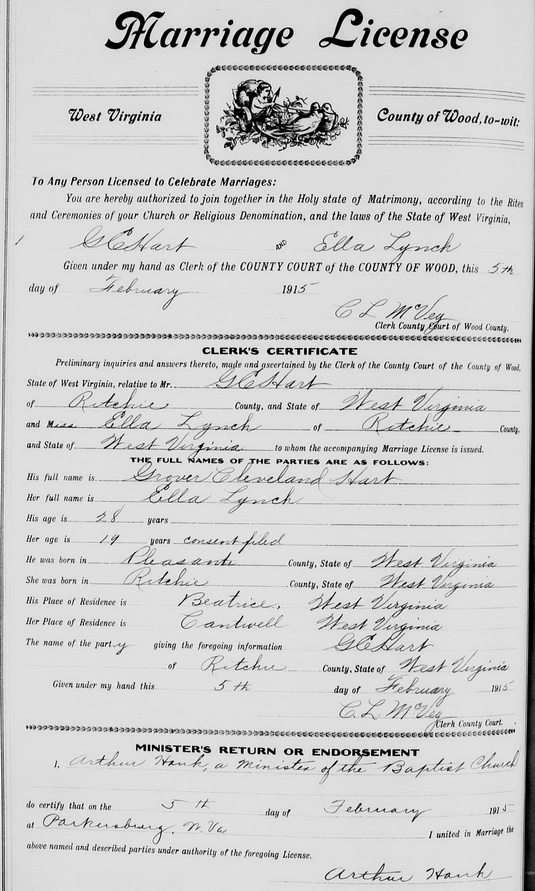 Marriage License
West Virginia
County of Wood, to-wit:
To Any Person Licensed to Celebrate Marriages:
You are hereby authorized to join together in the Holy state of Matrimony, according to the Rites
and Ceremonies of your Church or Religious Denomination, and the laws of the State of West Virginia,
G C Hart and Ella Lynch
Given under my hand as Clerk of the COUNTY COURT of the COUNTY OF WOOD, this 5th
day of February 1915
C L McVey
Clerk County Court of Wood County.
CLERK'S CERTIFICATE
Preliminary inquiries and answers thereto, made and ascertained by the Clerk of the County Court of the County of Wood,
State of West Virginia, relative to Mr. G C Hart
of Ritchie County, and State of West Virginia
and Miss Ella Lynch of Ritchie County,
and State of West Virginia to whom the accompanying Marriage License is issued.
THE FULL NAMES OF THE PARTIES ARE AS FOLLOWS:
His full name is Grover Cleveland Hart
Her full name is Ella Lynch
His age is 28 years
Her age is 19 years consent filed
He was born in Pleasants County, State of West Virginia
She was born in Ritchie County, State of West Virginia
His Place of Residence is Beatrice, West Virginia
Her Place of Residence is Cantwell West Virginia
The name of the party giving the foregoing information G C Hart
of Ritchie County, State of West Virginia
Given under my hand this 5th day of February 1915
C L McVey
Clerk County Court.
MINISTER'S RETURN OR ENDORSEMENT
I, Arthur Hank, a Minister of the Baptist Church
do certify that on the 5th day of February 1915
at Parkersburg, W. Va I united in Marriage the
above named and described parties under authority of the foregoing License.
Arthur Hank